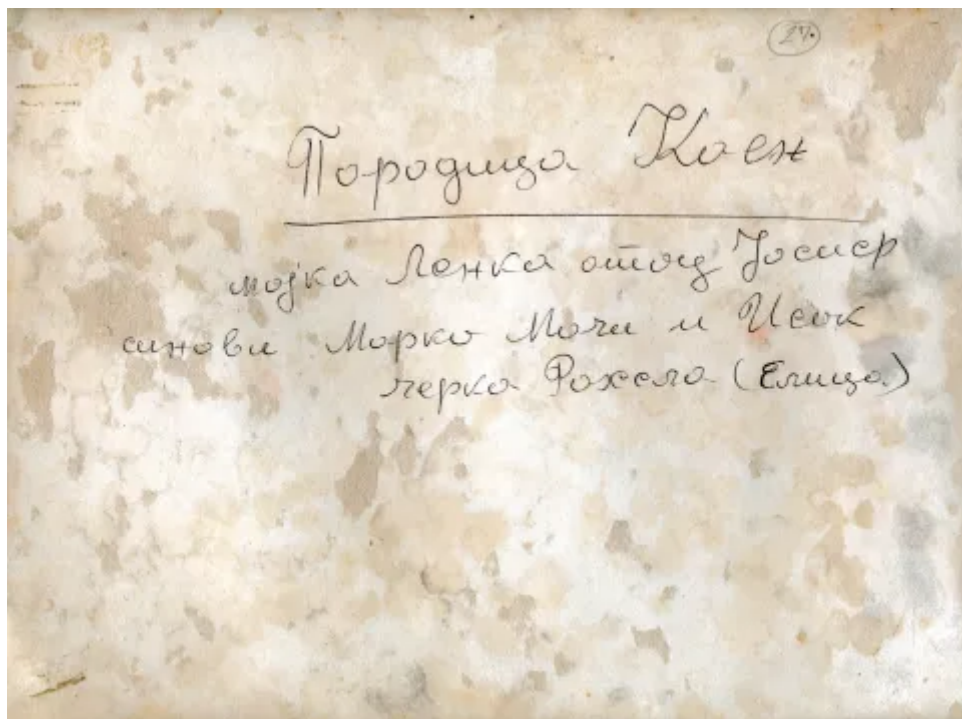 27.
Породица Коен
мајка Ленка отац Јосиф
синови Марко Мочи и Исак
черка Рахела (Елица)